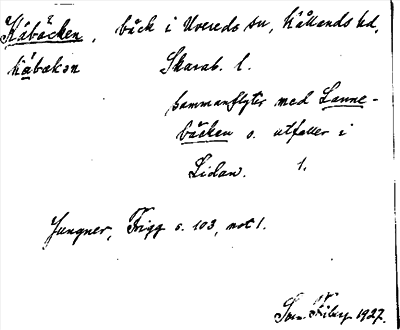 Kåbäcken, bäck i Uvereds sn, Kållands hd,
kåbækən Skarab. l.
sammanflyter med Lanne-
bäcken o. utfaller i
Lidan. 1.
Jungner, Frigg s. 103, not 1.
1927.